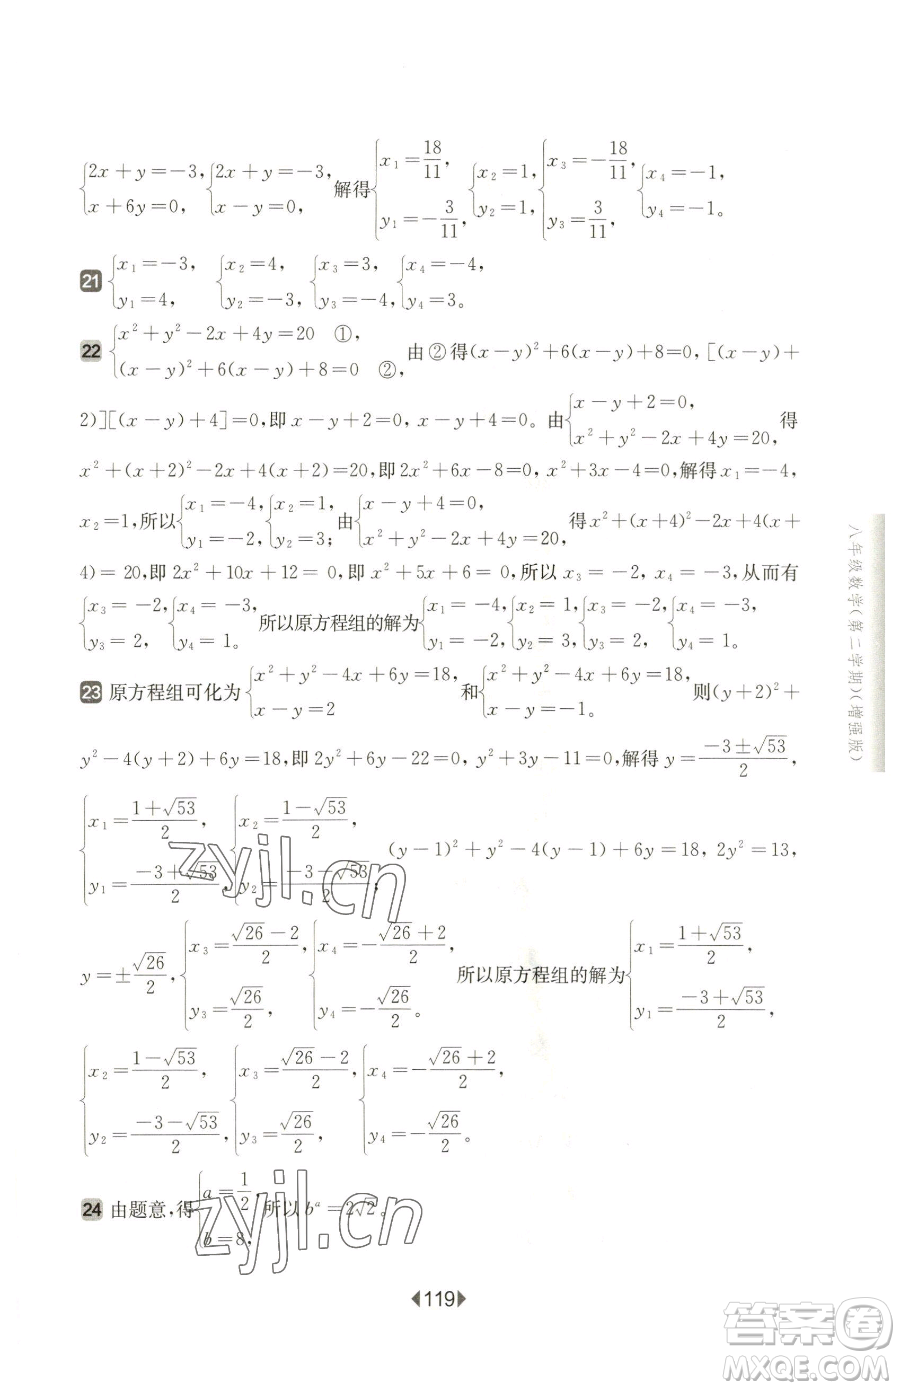 {2x+y=-3, x+6y=0, {2x+y=-3, x-y=0, 解得{x₁=18/11, y₁=-3/11, {x₂=1, y₂=1, {x₃=-18/11, y₃=3/11, {x₄=-1, y₄=-1。
21 {x₁=-3, y₁=4, {x₂=4, y₂=-3, {x₃=3, y₃=-4, {x₄=-4, y₄=3。
22 {x²+y²-2x+4y=20 ①, (x-y)²+6(x-y)+8=0 ②, 由②得(x-y)²+6(x-y)+8=0,[(x-y)+
2)][(x-y)+4]=0,即x-y+2=0,x-y+4=0。由{x-y+2=0, x²+y²-2x+4y=20, 得
x²+(x+2)²-2x+4(x+2)=20,即2x²+6x-8=0,x²+3x-4=0,解得x₁=-4,
x₂=1,所以{x₁=-4, y₁=-2, {x₂=1, y₂=3; 由{x-y+4=0, x²+y²-2x+4y=20, 得x²+(x+4)²-2x+4(x+
4)=20,即2x²+10x+12=0,即x²+5x+6=0,所以x₃=-2,x₄=-3,从而有
{x₃=-2, y₃=2, {x₄=-3, y₄=1。 所以原方程组的解为{x₁=-4, y₁=-2, {x₂=1, y₂=3, {x₃=-2, y₃=2, {x₄=-3, y₄=1。
23 原方程组可化为{x²+y²-4x+6y=18, x-y=2 和{x²+y²-4x+6y=18, x-y=-1。 则(y+2)²+
y²-4(y+2)+6y=18,即2y²+6y-22=0,y²+3y-11=0,解得y=(-3±√53)/2,
{x₁=(1+√53)/2, y₁=(-3+√53)/2, {x₂=(1-√53)/2, y₂=(-3-√53)/2, (y-1)²+y²-4(y-1)+6y=18,2y²=13,
y=±√26/2,{x₃=(√26-2)/2, y₃=√26/2, {x₄=-(√26+2)/2, y₄=-√26/2。 所以原方程组的解为{x₁=(1+√53)/2, y₁=(-3+√53)/2,
{x₂=(1-√53)/2, y₂=(-3-√53)/2, {x₃=(√26-2)/2, y₃=√26/2, {x₄=-(√26+2)/2, y₄=-√26/2。
24 由题意,得{a=1/2, b=8, 所以bᵃ=2√2。
119
八年级数学(第二学期)(增强版)
zyjl.cn
zyjl.cn
答案圈
MXQE.COM